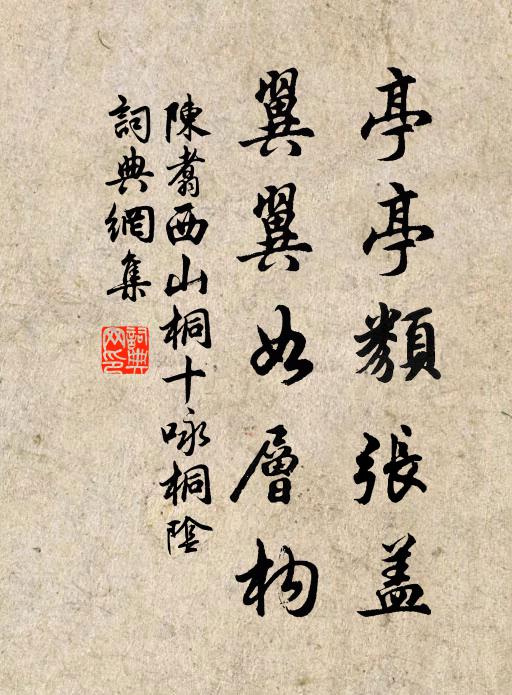 亭亭類張蓋
翼翼如層构
陳翥西山桐十咏桐陰
詞典網集
詞典網印